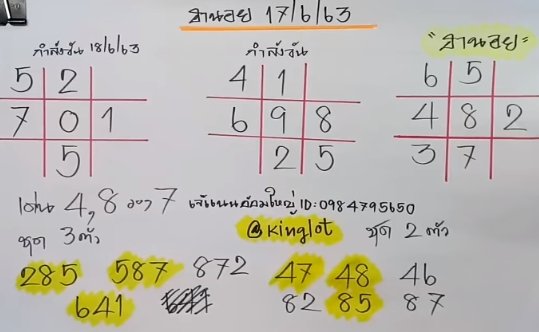 ฮานอย 17/6/63
กำลังวัน 18/6/63
กำลังวัน
"ฮานอย"
5 2
4 1
6 5
7 0 1
6 9 8
4 8 2
5
2 5
3 7
เด่น 4, 8 รอง 7 ID: 0984795650
ชุด 3 ตัว
@kinglot
ชุด 2 ตัว
285 587 872 47 48 46
641 82 85 87